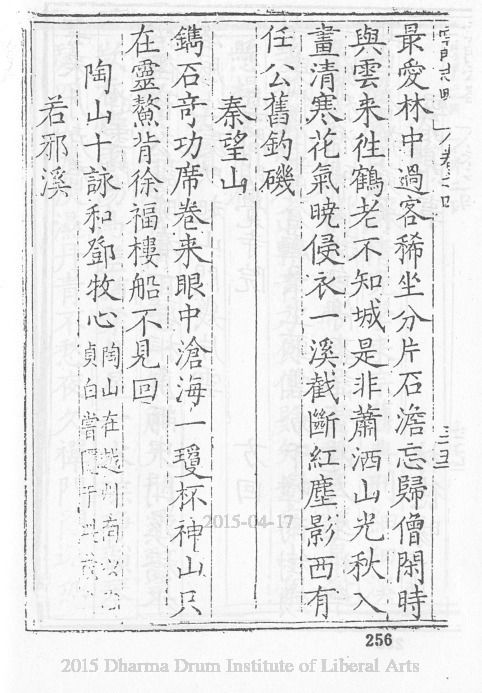 最愛林中過客稀坐分片石澹忘歸僧閑時
與雲来徃鶴老不知城是非蕭洒山光秋入
畫清寒花氣曉侵衣一溪截斷紅塵影西有
任公舊釣磯
秦望山
鐫石竒功席卷来眼中滄海一瓊杯神山只
在靈鰲背徐福樓船不見回
陶山十詠和鄧牧心陶山在越州
貞白嘗
若邪溪
三五
256
2015-04-17
2015 Dharma Drum Institute of Liberal Arts